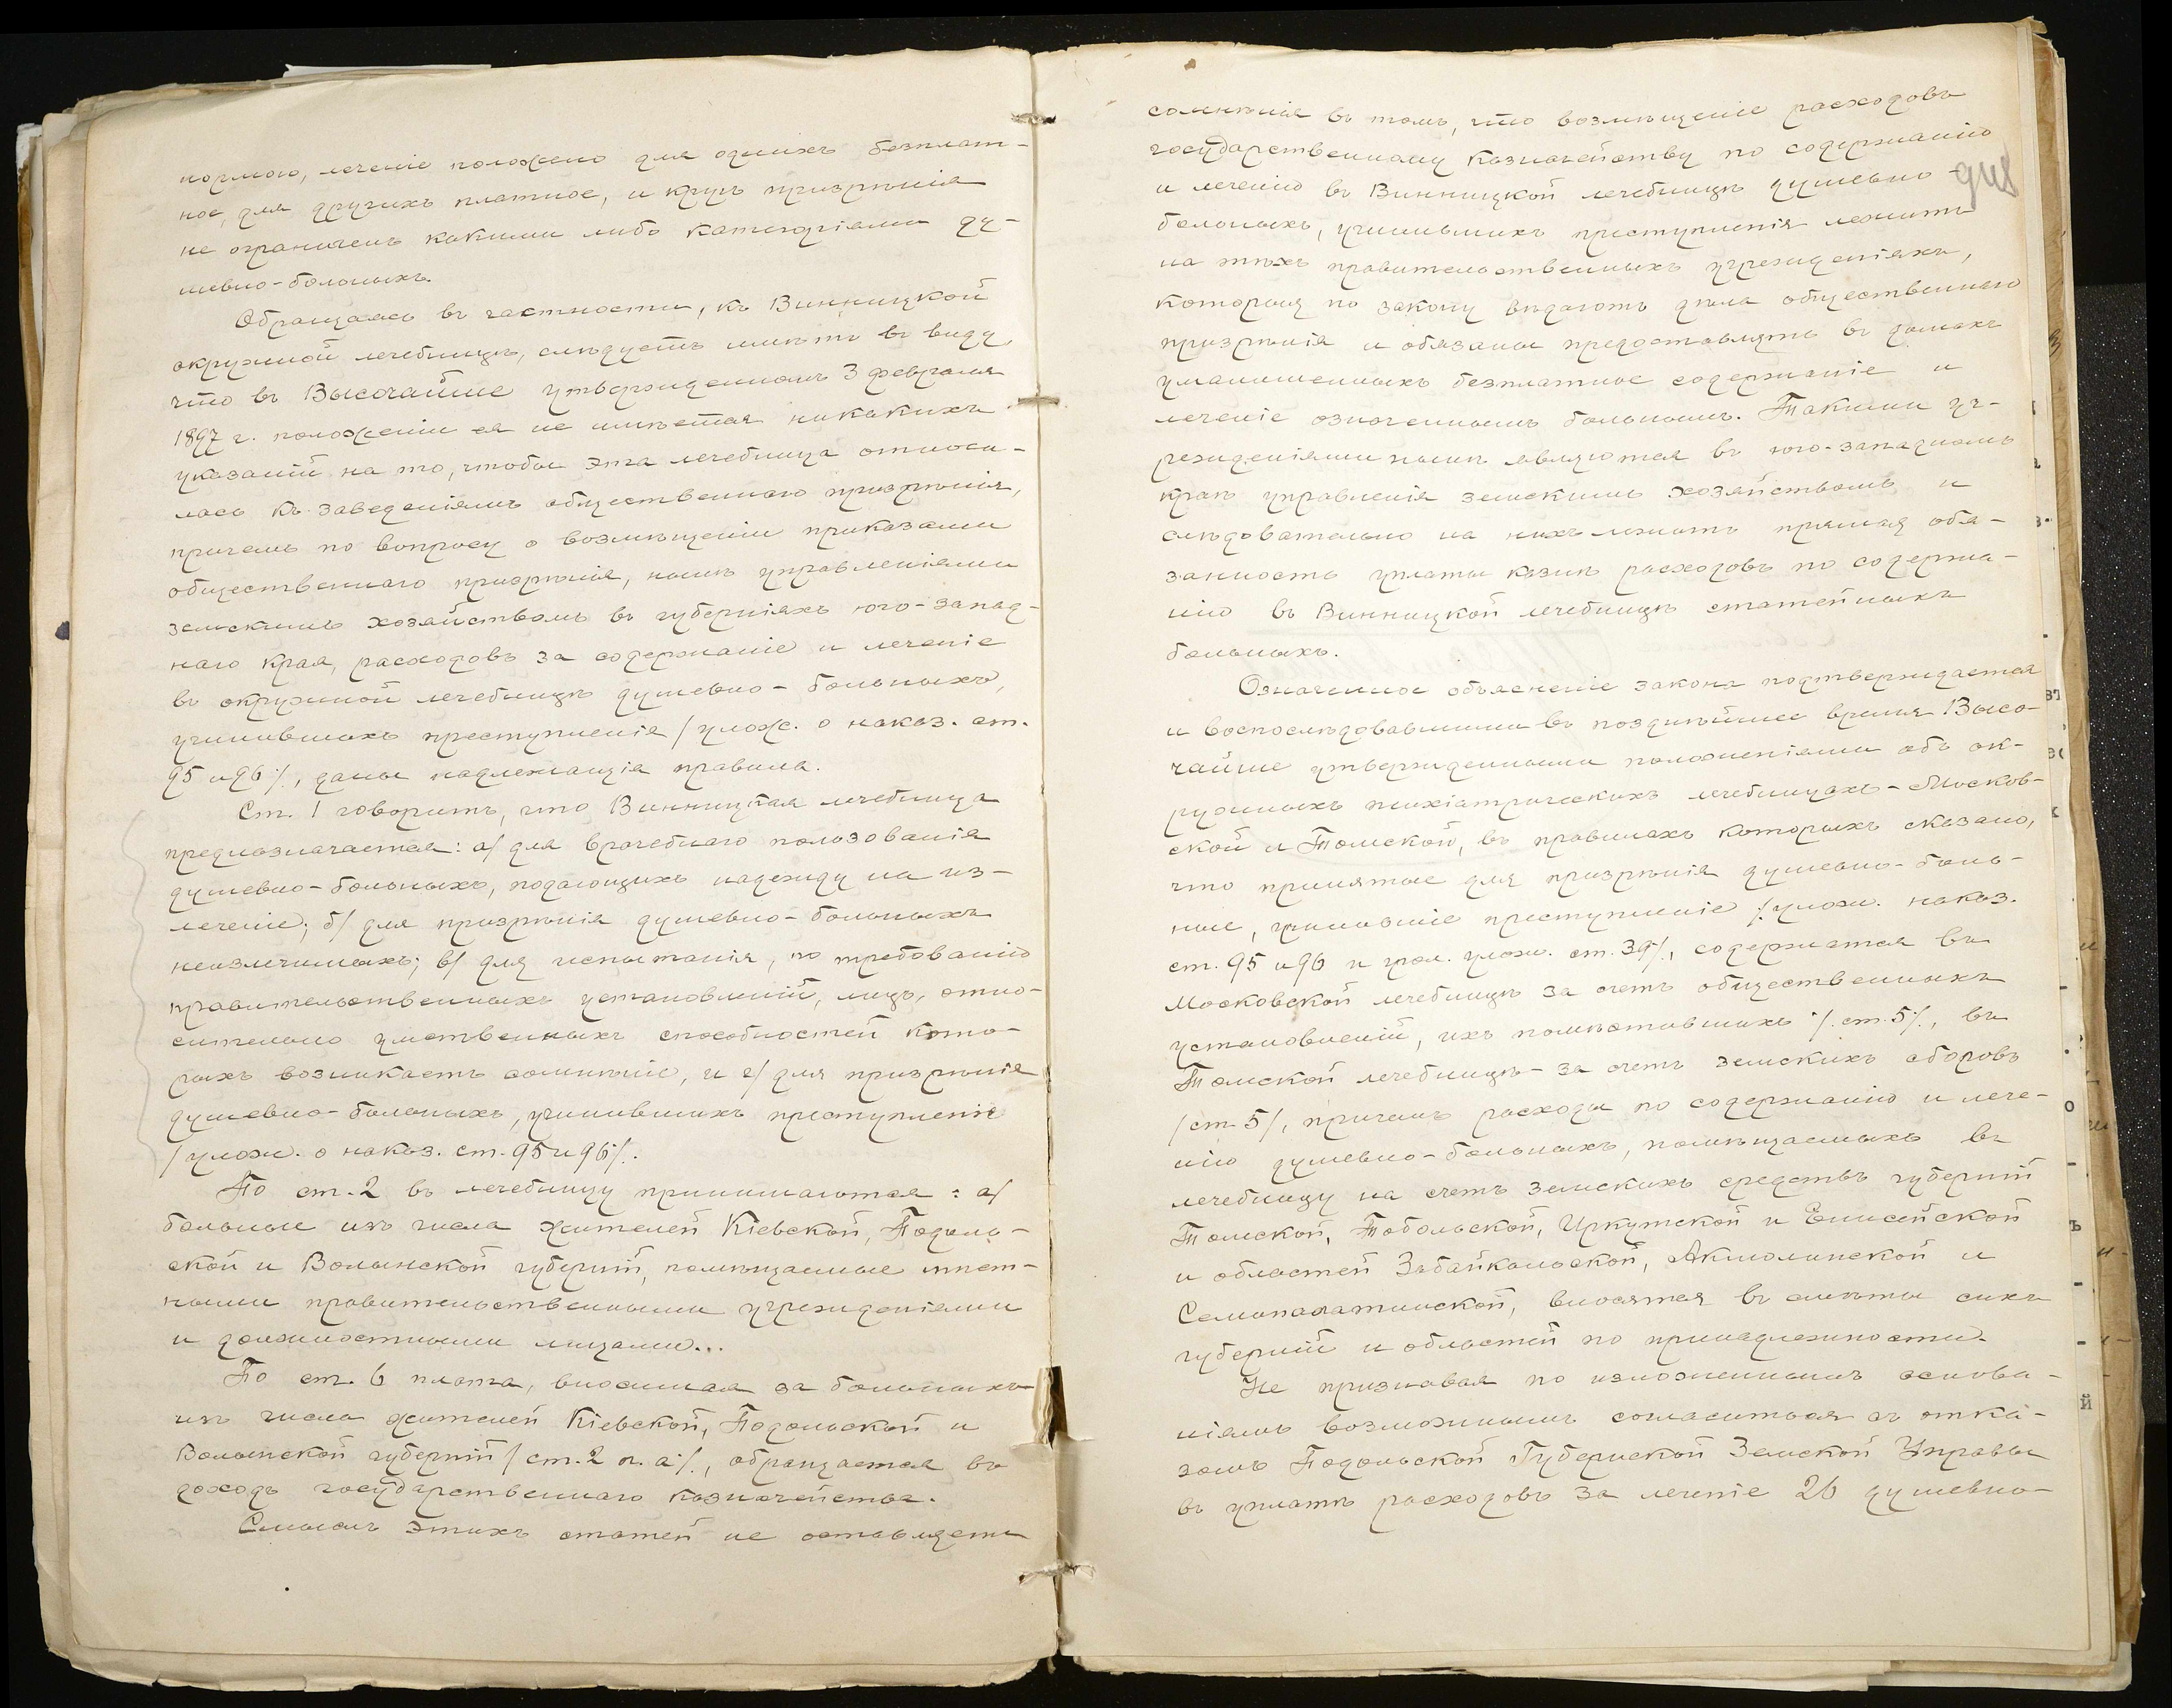 нормою, леченіе положено для однихъ безплат-
ное, для другихъ платное, и кругъ призрѣнія
не ограниченъ какими либо категоріями ду-
шевно-больныхъ.
Обращаясь въ частности, къ Винницкой
окружной лечебницѣ, слѣдуетъ имѣть въ виду,
что въ Высочайше утвержденномъ 3 февраля
1897 г. положеніи ея не имѣется никакихъ
указаній на то, чтобы эта лечебница относи-
лась къ заведеніямъ общественнаго призрѣнія,
причемъ по вопросу о возмѣщеніи приказами
общественнаго призрѣнія, нынѣ управленіями
земскимъ хозяйствомъ въ губерніяхъ юго-запад-
наго края, расходовъ за содержаніе и леченіе
въ окружной лечебницѣ душевно-больныхъ,
учинившихъ преступленія /улож. о наказ. ст.
95 и 96/, даны надлежащія правила.
Ст. 1 говоритъ, что Винницкая лечебница
предназначается: а/ для врачебнаго пользованія
душевно-больныхъ, подающихъ надежду на из-
леченіе; б/ для призрѣнія душевно-больныхъ
неизлечимыхъ; в/ для испытанія, по требованію
правительственныхъ установленій, лицъ, отно-
сительно умственныхъ способностей кото-
рыхъ возникаетъ сомнѣніе, и г/ для призрѣнія
душевно-больныхъ, учинившихъ преступленіе
/улож. о наказ. ст. 95 и 96/.
По ст. 2 въ лечебницу принимаются: а/
больные изъ числа жителей Кіевской, Подоль-
ской и Волынской губерній, помѣщаемые мѣст-
ными правительственными учрежденіями
и должностными лицами...
По ст. 6 плата, вносимая за больныхъ
изъ числа жителей Кіевской, Подольской и
Волынской губерній /ст. 2 п. а/, обращается въ
доходъ государственнаго казначейства.
Смыслъ этихъ статей не оставляетъ
сомнѣнія въ томъ, что возмѣщеніе расходовъ
государственному казначейству по содержанію
и леченію въ Винницкой лечебницѣ душевно-
больныхъ, учинившихъ преступленія лежитъ
на тѣхъ правительственныхъ учрежденіяхъ,
которыя по закону вѣдаютъ дѣла общественнаго
призрѣнія и обязаны предоставлять въ домахъ
умалишенныхъ безплатное содержаніе и
леченіе означеннымъ больнымъ. Такими уч-
режденіями нынѣ являются въ юго-западномъ
краѣ управленія земскимъ хозяйствомъ, и
слѣдовательно на нихъ лежитъ прямая обя-
занность уплаты казнѣ расходовъ по содержа-
нію въ Винницкой лечебницѣ статейныхъ
больныхъ.
Означенное объясненіе закона подтверждается
и воспослѣдовавшими въ позднѣйшее время Высо-
чайше утвержденными положеніями объ ок-
ружныхъ психіатрическихъ лечебницахъ - Москов-
ской и Томской, въ правилахъ которыхъ сказано,
что принятые для призрѣнія душевно-боль-
ные, учинившіе преступленіе /улож. наказ.
ст. 95 и 96 и угол. улож. ст. 39/, содержатся въ
Московской лечебницѣ за счетъ общественныхъ
установленій, ихъ помѣстившихъ /ст. 5/, въ
Томской лечебницѣ - за счетъ земскихъ сборовъ
/ст. 5/, причемъ расходы по содержанію и лече-
нію душевно-больныхъ, помѣщаемыхъ въ
лечебницу на счетъ земскихъ средствъ губерній
Томской, Тобольской, Иркутской и Енисейской
и областей Забайкальской, Акмолинской и
Семипалатинской, вносятся въ смѣты сихъ
губерній и областей по принадлежности.
Не признавая по изложеннымъ основа-
ніямъ возможнымъ согласиться съ отка-
зомъ Подольской Губернской Земской Управы
въ уплатѣ расходовъ за леченіе 26 душевно-